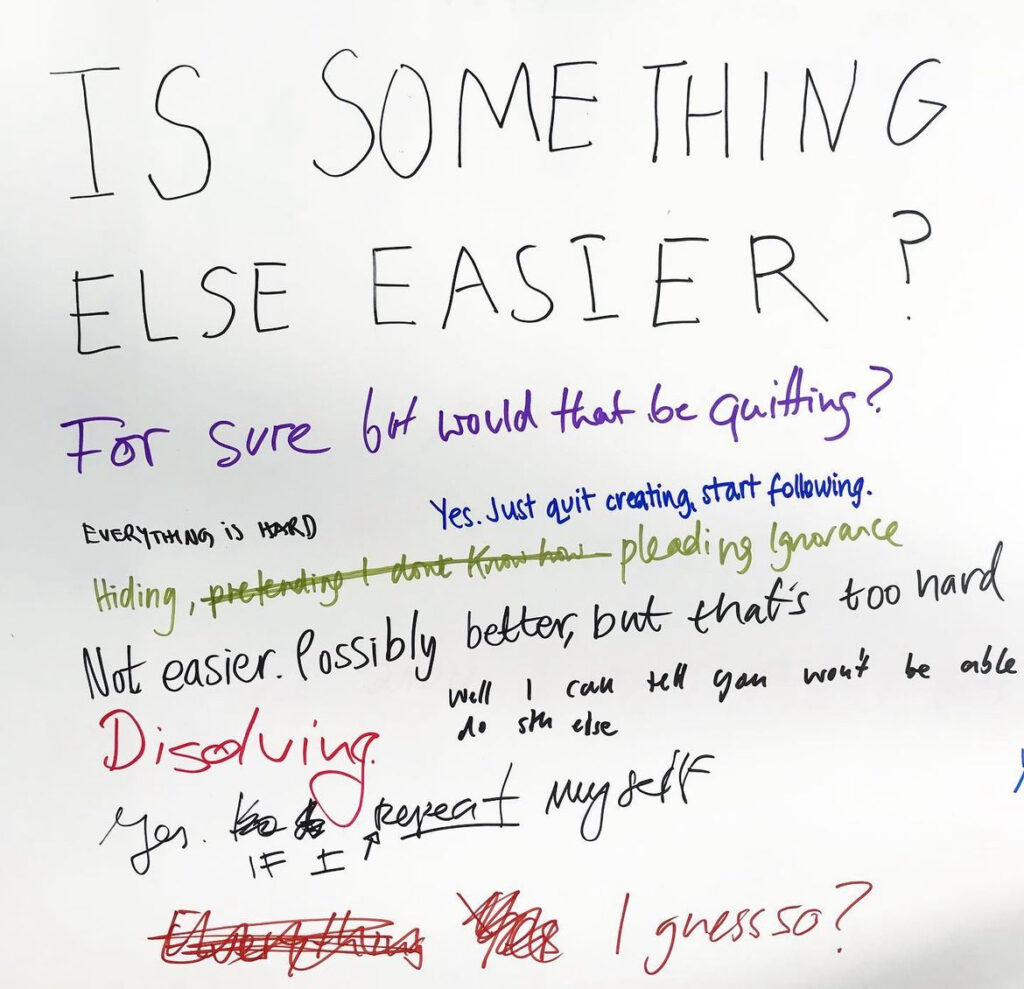 IS SOMETHING
ELSE EASIER?
For sure but would that be quitting?
Yes. Just quit creating, start following.
EVERYTHING is HARD
Hiding, pretending I dont know how pleading Ignorance
Not easier. Possibly better, but that's too hard
Well I can tell you won't be able
do sth else
Disolving.
Yes. repeat myself
IF I
Everything Yes I guess so?